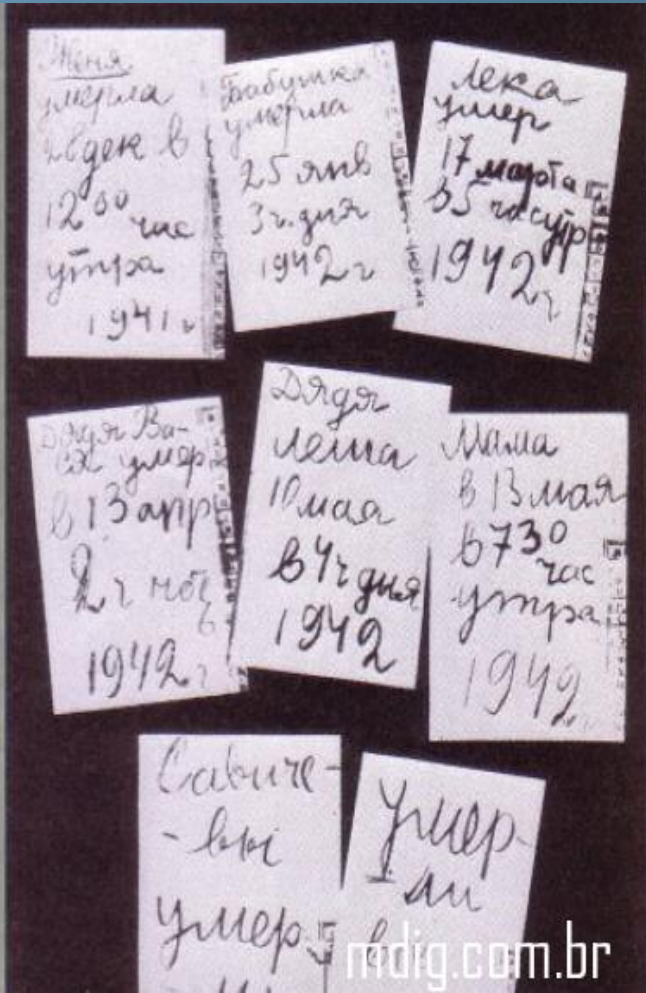 Женя
умерла
28 дек в
12 00 час
утра
1941 г
Бабушка
умерла
25 янв
3 ч. дня
1942 г
Лека
умер
17 марта
в 5 час утр
1942 г
Дядя Ва-
ся умер
в 13 апр
2 ч ноч
1942 г
Дядя
Леша
10 мая
в 4 ч дня
1942
Мама
в 13 мая
в 7 30
час
утра
1942
Савиче-
-вы
умер
Умер-
-ли
mdig.com.br